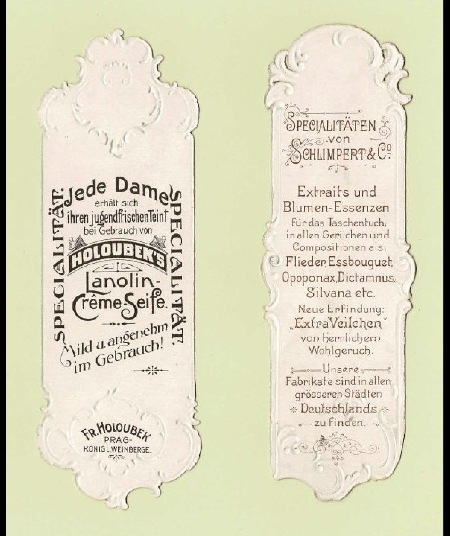 SPECIALITÄT.
Jede Dame
erhält sich
ihren jugendfrischen Teint
bei Gebrauch von
HOLOUBEK'S
Lanolin-
Crême Seife.
Mild u. angenehm
im Gebrauch!
SPECIALITÄT.
FR. HOLOUBEK
PRAG-
KÖNIGL. WEINBERGE.
SPECIALITÄTEN
von
SCHLIMPERT & Co.
Extraits und
Blumen-Essenzen
für das Taschentuch,
in allen Gerüchen und
Compositionen als:
Flieder, Essbouquet,
Opoponax, Dictamnus,
Silvana etc.
Neue Erfindung:
"Extra Veilchen"
von herrlichem
Wohlgeruch.
Unsere
Fabrikate sind in allen
grösseren Städten
Deutschlands
zu finden.